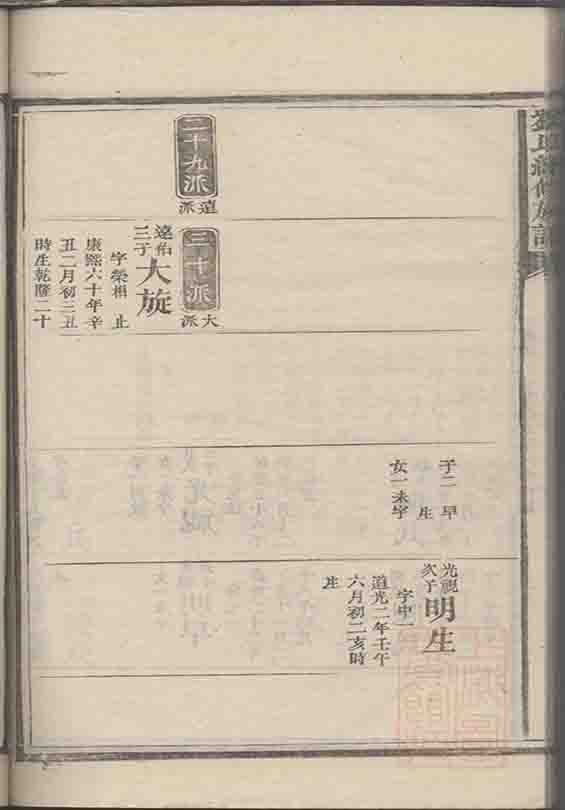 二十九派
遠派
三十派
大派
遠佑
三子
大旋
字榮相 止
康熙六十年辛
丑二月初三丑
時生乾隆二十
子二 早
生
女一未字
光視
次子
明生
字中一
道光二年壬午
六月初二亥時
生